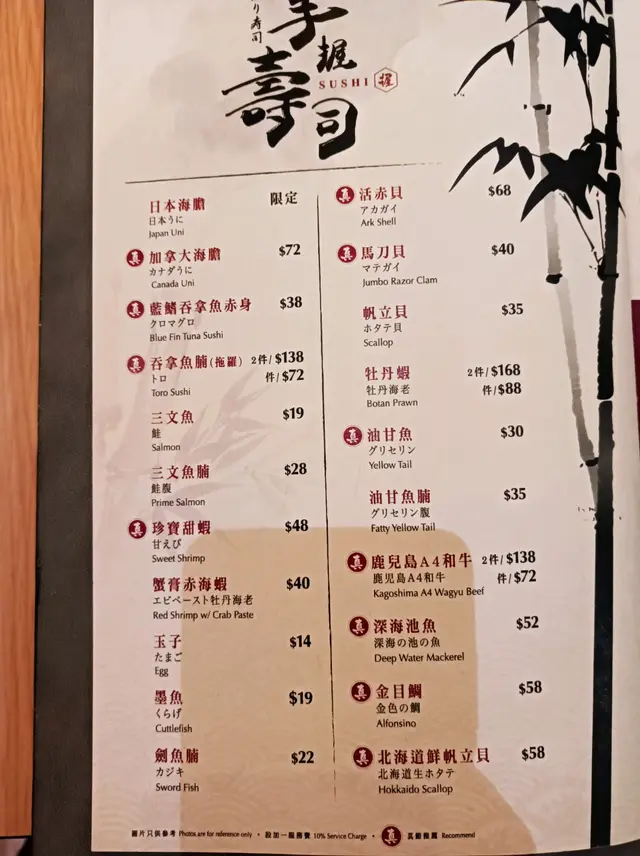 り寿司
手握
SUSHI 握
壽司
日本海膽 限定
日本うに
Japan Uni
真 加拿大海膽 $72
カナダうに
Canada Uni
真 藍鰭吞拿魚赤身 $38
クロマグロ
Blue Fin Tuna Sushi
真 吞拿魚腩(拖羅) 2件/$138
トロ 件/$72
Toro Sushi
三文魚 $19
鮭
Salmon
三文魚腩 $28
鮭腹
Prime Salmon
真 珍寶甜蝦 $48
甘えび
Sweet Shrimp
蟹膏赤海蝦 $40
エビペースト牡丹海老
Red Shrimp w/ Crab Paste
玉子 $14
たまご
Egg
墨魚 $19
くらげ
Cuttlefish
劍魚腩 $22
カジキ
Sword Fish
真 活赤貝 $68
アカガイ
Ark Shell
真 馬刀貝 $40
マテガイ
Jumbo Razor Clam
帆立貝 $35
ホタテ貝
Scallop
牡丹蝦 2件/$168
牡丹海老 件/$88
Botan Prawn
真 油甘魚 $30
グリセリン
Yellow Tail
油甘魚腩 $35
グリセリン腹
Fatty Yellow Tail
真 鹿兒島A4和牛 2件/$138
鹿児島A4和牛 件/$72
Kagoshima A4 Wagyu Beef
真 深海池魚 $52
深海の池の魚
Deep Water Mackerel
真 金目鯛 $58
金色の鯛
Alfonsino
真 北海道鮮帆立貝 $58
北海道生ホタテ
Hokkaido Scallop
圖片只供參考 Photos are for reference only • 設加一服務費 10% Service Charge • 真 推薦 Recommend